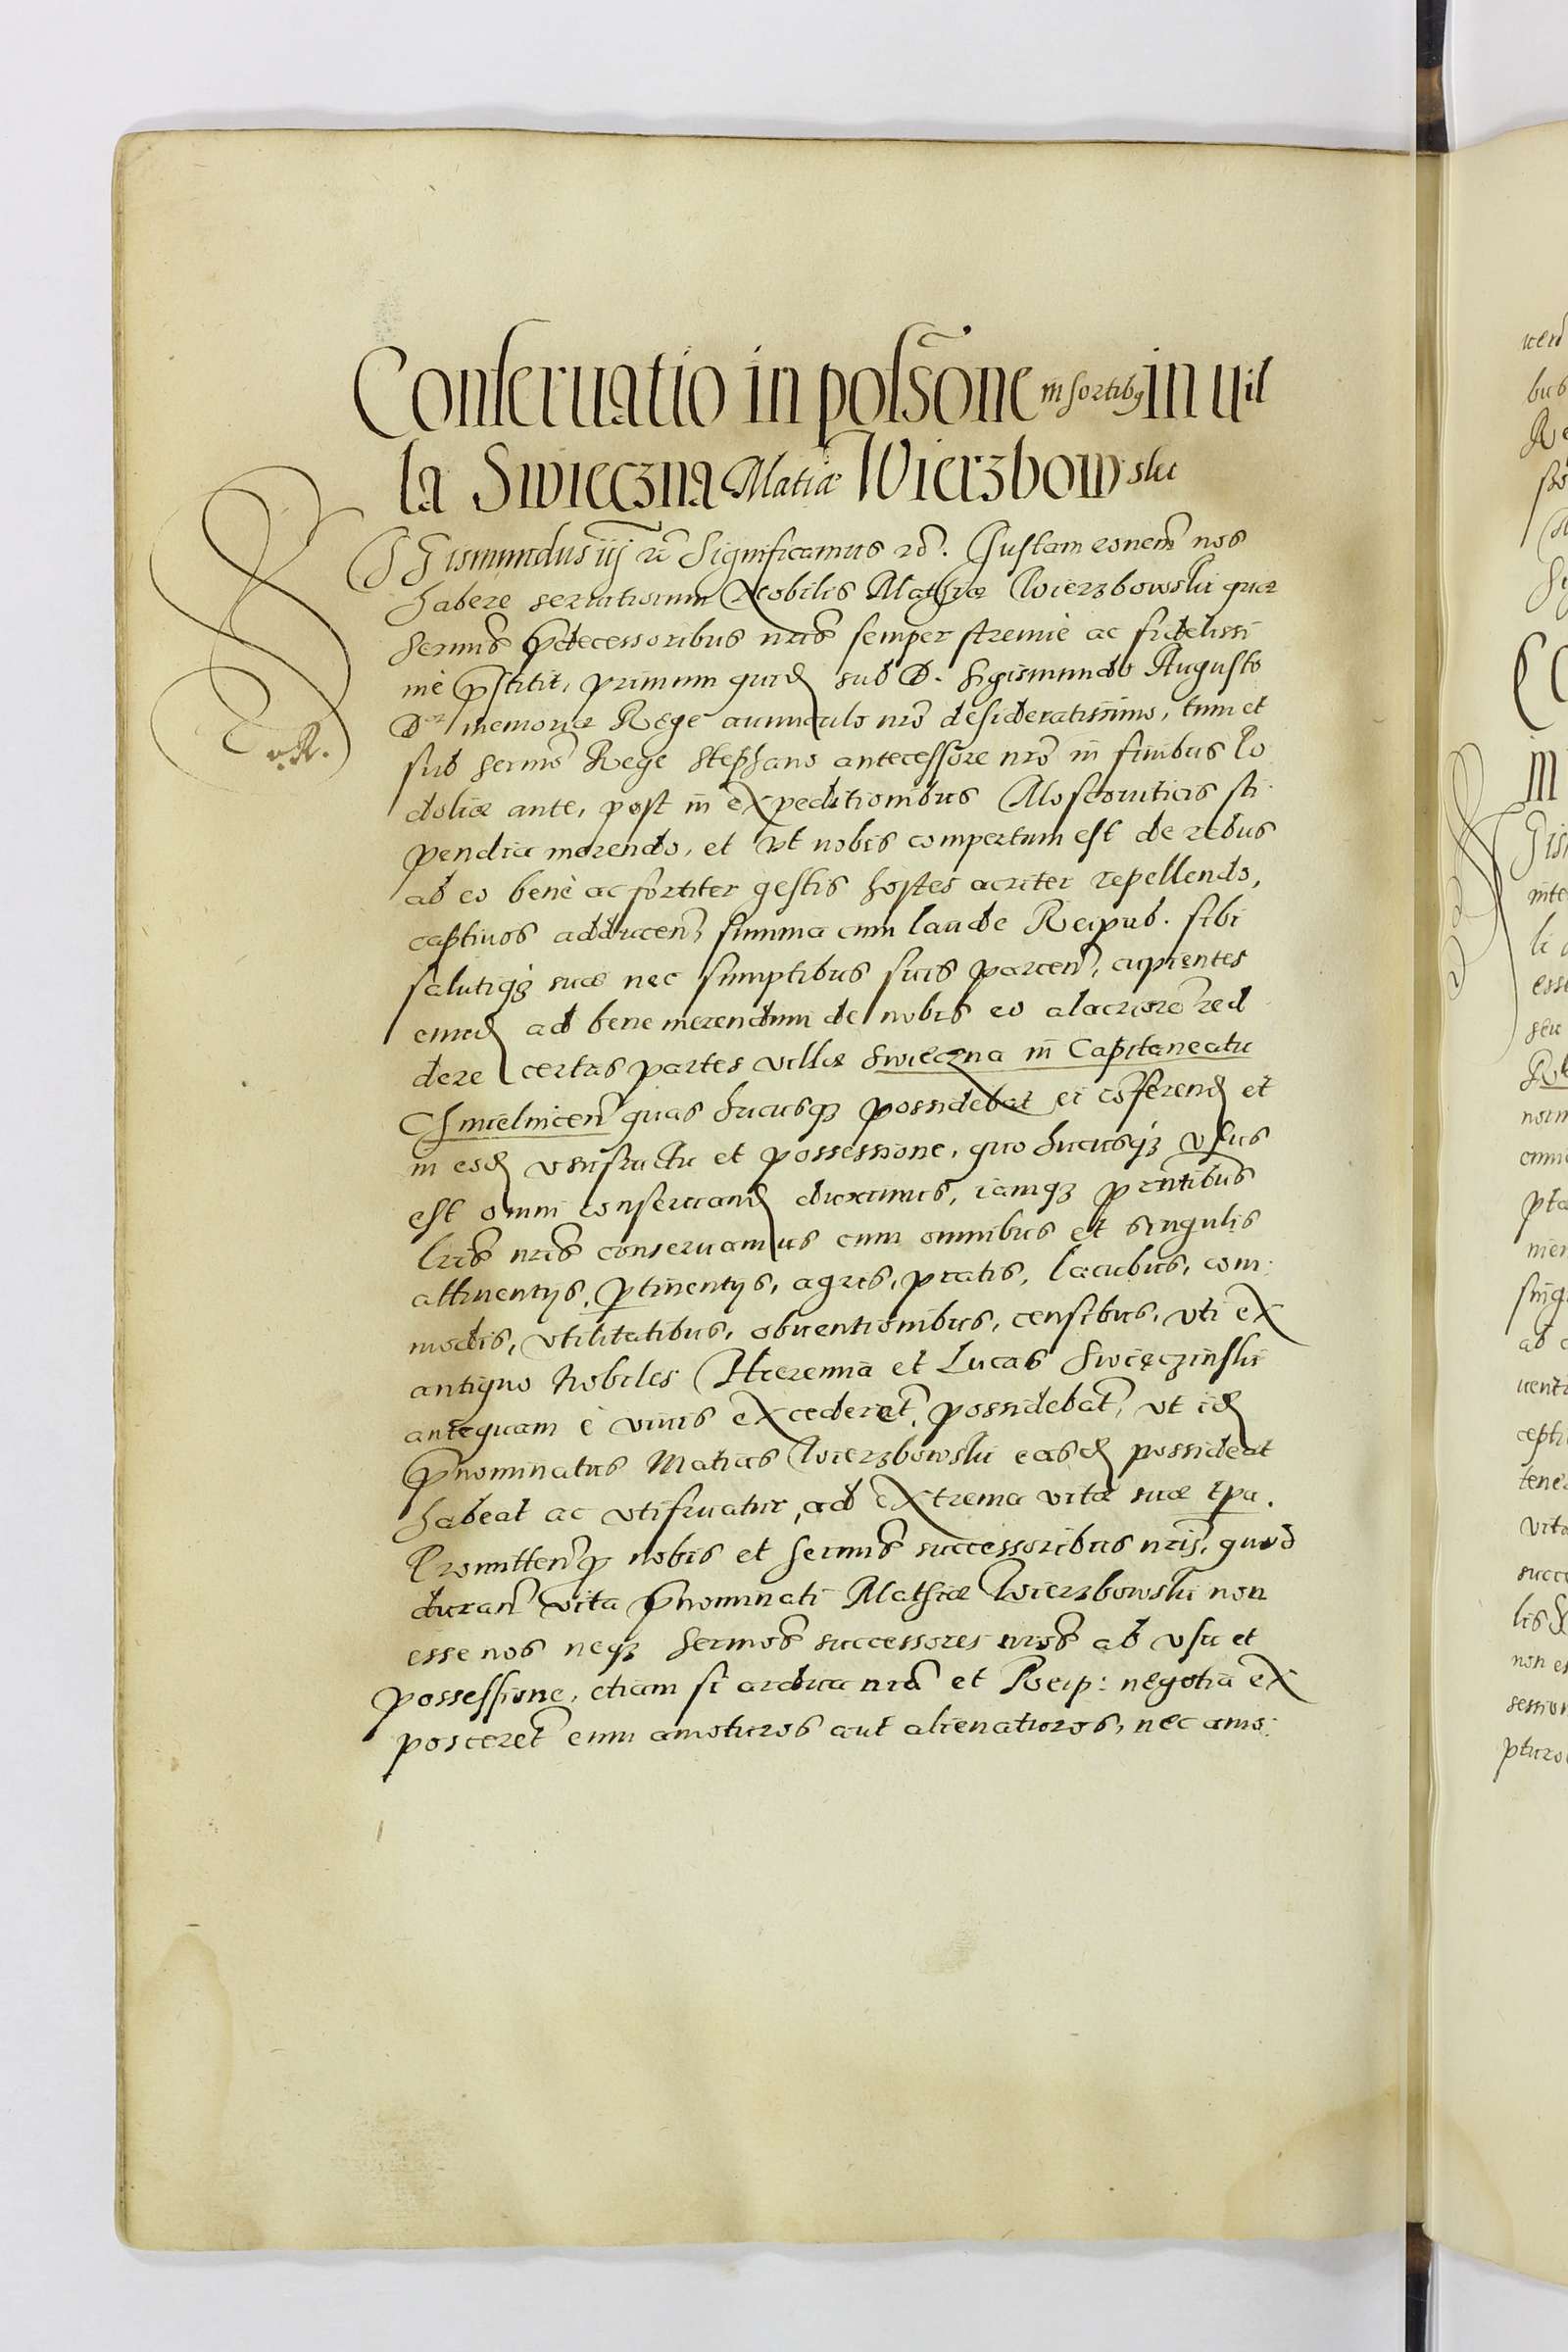 Conseruatio in possone in sortibq in uil
la Swieczna Matiæ Wierzbowski
Sigismundus iij rc Significamus rc. Justam eonem nos
habere seruitiorum Nobilis Mathiæ Wierzbowski quæ
sermis predecessoribus nris semper strenuè ac fidelissi
mè prestitit, primum quid sub D. Sigismundo Augusto
Dæ memoriæ Rege auunculo nro desideratissimo, tum et
sub sermo Rege Stephano antecessore nro in finibus Po
doliæ ante, post in expeditionibus Moscouiticis sti
pendia merendo, et vt nobis compertum est de rebus
ab eo benè ac fortiter gestis hostes acriter repellendo,
captiuos adducen, summa cum laude Reipub. sibi
salutiqz suæ nec sumptibus suis parcen, cupientes
eund ad bene merendum de nobis eo alacriore red
dere certas partes villæ Swieczna in Capitaneatu
Chmielnicen quas hucusqz possidebat ei coferend et
in eod vsufructu et possessione, quo hucusqz vsus
est omni conseruand duximus, iamqz prntibus
lris nris conseruamus cum omnibus et singulis
attinentijs, ptinentijs, agris, pratis, lacubus, com
modis, vtilitatibus, obuentionibus, censibus, vti ex
antiquo Nobiles Hieremia et Lucas Swięczinski
antequam è viuis excederet, possidebat, vt id
prenominatus Matias Wierzbowski easd possideat
habeat ac vtifruatur, ad extrema vitæ suæ tpa.
Promitten p nobis et sermis successoribus nris, quod
duran vita prenominati Mathiæ Wierzbowski non
esse nos neqz sermos successores nros ab vsu et
possessione, etiam si ardua nra et Reip: negotia ex
posceret eum amoturos aut alienaturos, nec amo